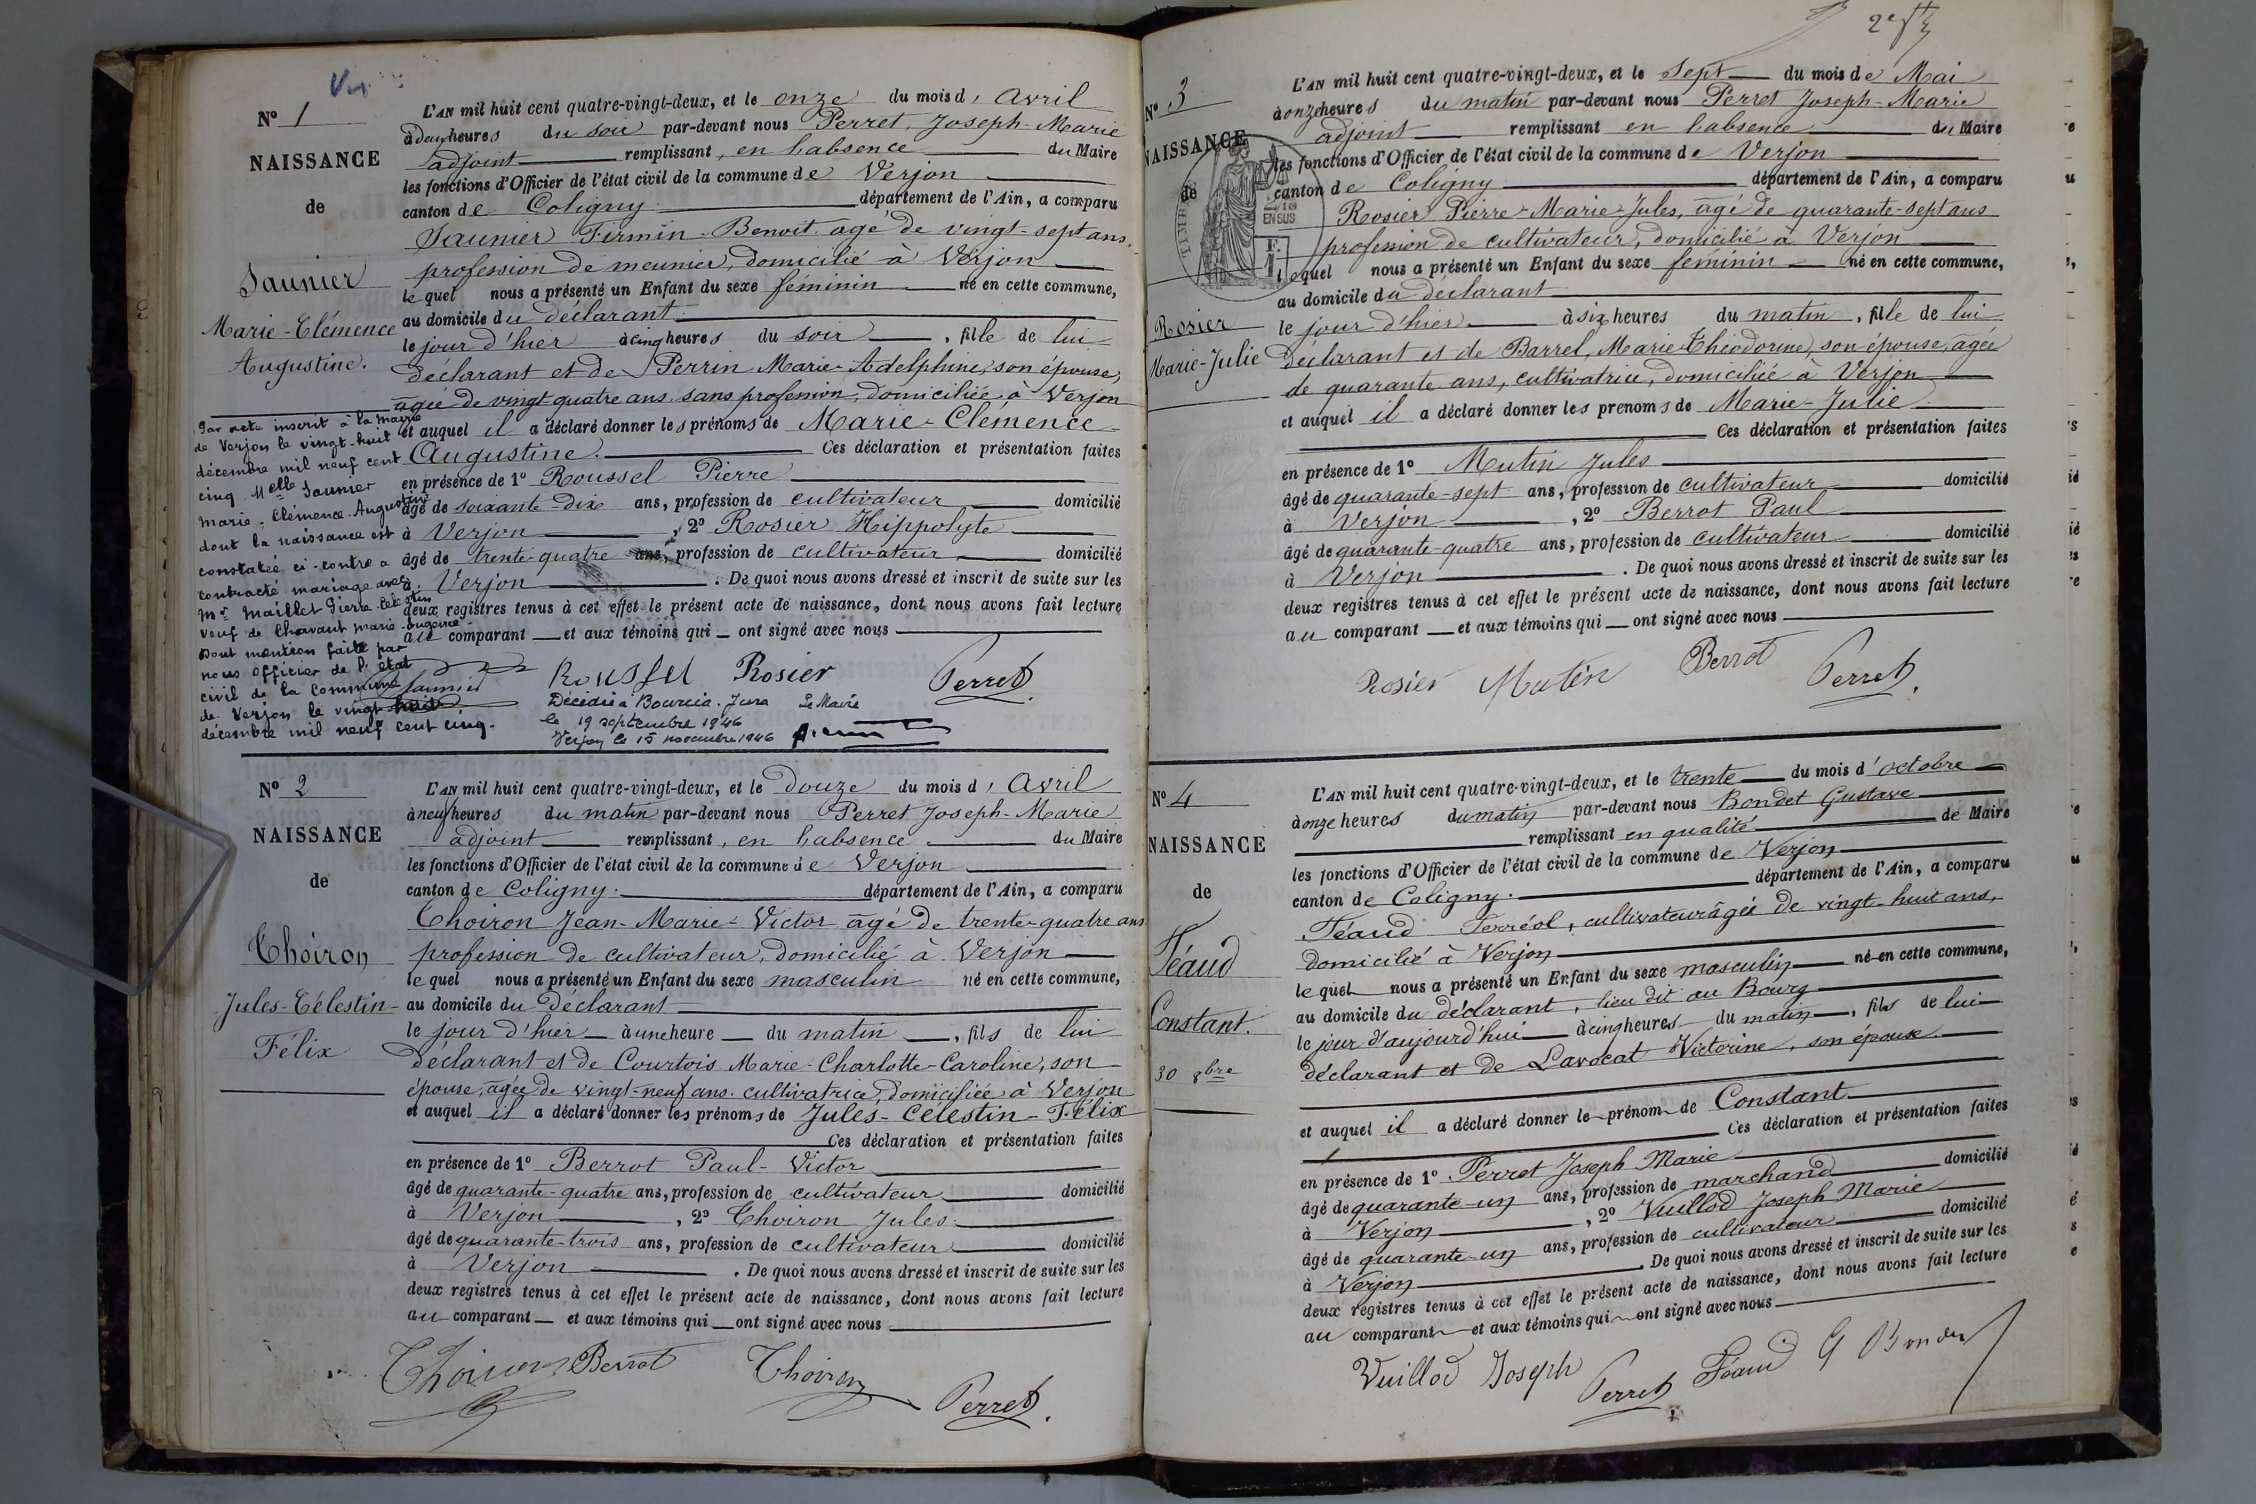 Vu
Nº 1
NAISSANCE
de
Saunier
Marie-Clémence
Augustine.
Par acte inscrit à la mairie
de Verjon le vingt-huit
décembre mil neuf cent
cinq Melle Saunier
Marie-Clémence-Augustine
dont la naissance est
constatée ci-contre a
contracté mariage avec
Mr Maillet Pierre Célestin
veuf de Chavant Marie-Eugénie
Dont mention faite par
nous officier de l'état
civil de la Commune
de Verjon le vingt-huit
décembre mil neuf cent cinq.
L'AN mil huit cent quatre-vingt-deux, et le onze du mois d'Avril
à deux heures du soir par-devant nous Perret, Joseph-Marie
adjoint remplissant, en l'absence du Maire
les fonctions d'Officier de l'état civil de la commune de Verjon
canton de Coligny département de l'Ain, a comparu
Saunier Firmin-Benoit âgé de vingt-sept ans,
profession de meunier, domicilié à Verjon
lequel nous a présenté un Enfant du sexe féminin né en cette commune,
au domicile du déclarant
le jour d'hier à cinq heures du soir, fille de lui
déclarant et de Perrin Marie-Adelphine, son épouse,
âgée de vingt quatre ans sans profession, domiciliée à Verjon
et auquel il a déclaré donner les prénoms de Marie-Clémence-
Augustine. Ces déclaration et présentation faites
en présence de 1º Roussel Pierre
âgé de soixante-dix ans, profession de cultivateur domicilié
à Verjon, 2º Rosier Hippolyte
âgé de trente-quatre ans, profession de cultivateur domicilié
à Verjon. De quoi nous avons dressé et inscrit de suite sur les
deux registres tenus à cet effet le présent acte de naissance, dont nous avons fait lecture
au comparant et aux témoins qui ont signé avec nous
Saunier Roussel Rosier Perret
Décédée à Bourcia. Jura Le Maire
le 19 septembre 1946
Verjon le 15 novembre 1946
Nº 2
NAISSANCE
de
Thoiron
Jules-Célestin-
Félix
L'AN mil huit cent quatre-vingt-deux, et le Douze du mois d'Avril
à neuf heures du matin par-devant nous Perret Joseph-Marie
adjoint remplissant, en l'absence du Maire
les fonctions d'Officier de l'état civil de la commune de Verjon
canton de Coligny. département de l'Ain, a comparu
Thoiron Jean-Marie-Victor âgé de trente-quatre ans
profession de cultivateur, domicilié à Verjon
lequel nous a présenté un Enfant du sexe masculin né en cette commune,
au domicile du Déclarant
le jour d'hier à une heure du matin, fils de lui
Déclarant et de Courtois Marie-Charlotte-Caroline, son
épouse, âgée de vingt-neuf ans. cultivatrice, domiciliée à Verjon
et auquel il a déclaré donner les prénoms de Jules-Célestin-Félix
Ces déclaration et présentation faites
en présence de 1º Berrot Paul-Victor
âgé de quarante-quatre ans, profession de cultivateur domicilié
à Verjon, 2º Thoiron Jules
âgé de quarante-trois ans, profession de cultivateur domicilié
à Verjon. De quoi nous avons dressé et inscrit de suite sur les
deux registres tenus à cet effet le présent acte de naissance, dont nous avons fait lecture
au comparant et aux témoins qui ont signé avec nous
Thoiron Berrot Thoiron Perret.
2e ft
Nº 3
NAISSANCE
de
Rosier
Marie-Julie
EN SUS
L'AN mil huit cent quatre-vingt-deux, et le Sept du mois de Mai
à onze heures du matin par-devant nous Perret Joseph-Marie
adjoint remplissant en l'absence du Maire
les fonctions d'Officier de l'état civil de la commune de Verjon
canton de Coligny département de l'Ain, a comparu
Rosier Pierre-Marie-Jules, âgé de quarante-sept ans
profession de cultivateur, domicilié à Verjon
lequel nous a présenté un Enfant du sexe féminin né en cette commune,
au domicile du déclarant
le jour d'hier à six heures du matin, fille de lui
déclarant et de Barrel, Marie-Théodorine, son épouse, âgée
de quarante ans, cultivatrice, domiciliée à Verjon
et auquel il a déclaré donner les prenoms de Marie-Julie
Ces déclaration et présentation faites
en présence de 1º Mutin Jules
âgé de quarante-sept ans, profession de cultivateur domicilié
à Verjon, 2º Berrot Paul
âgé de quarante-quatre ans, profession de cultivateur domicilié
à Verjon. De quoi nous avons dressé et inscrit de suite sur les
deux registres tenus à cet effet le présent acte de naissance, dont nous avons fait lecture
au comparant et aux témoins qui ont signé avec nous
Rosier Mutin Berrot Perret.
Nº 4
NAISSANCE
de
Féaud
Constant.
30 8bre
L'AN mil huit cent quatre-vingt-deux, et le trente du mois d'octobre
à onze heures du matin par-devant nous Bondet Gustave
remplissant en qualité de Maire
les fonctions d'Officier de l'état civil de la commune de Verjon
canton de Coligny. département de l'Ain, a comparu
Féaud Ferréol, cultivateur âgés de vingt-huit ans,
domicilié à Verjon
lequel nous a présenté un Enfant du sexe masculin né en cette commune,
au domicile du déclarant, lieu dit au Bourg
le jour d'aujourd'hui à cinq heures du matin, fils de lui
déclarant et de Lavocat Victorine, son épouse.
et auquel il a déclaré donner le prénom de Constant
Ces déclaration et présentation faites
en présence de 1º Perret Joseph Marie
âgé de quarante-un ans, profession de marchand domicilié
à Verjon, 2º Vuillod Joseph Marie
âgé de quarante-un ans, profession de cultivateur domicilié
à Verjon. De quoi nous avons dressé et inscrit de suite sur les
deux registres tenus à cet effet le présent acte de naissance, dont nous avons fait lecture
au comparant et aux témoins qui ont signé avec nous
Vuillod Joseph Perret Féaud G Bondet